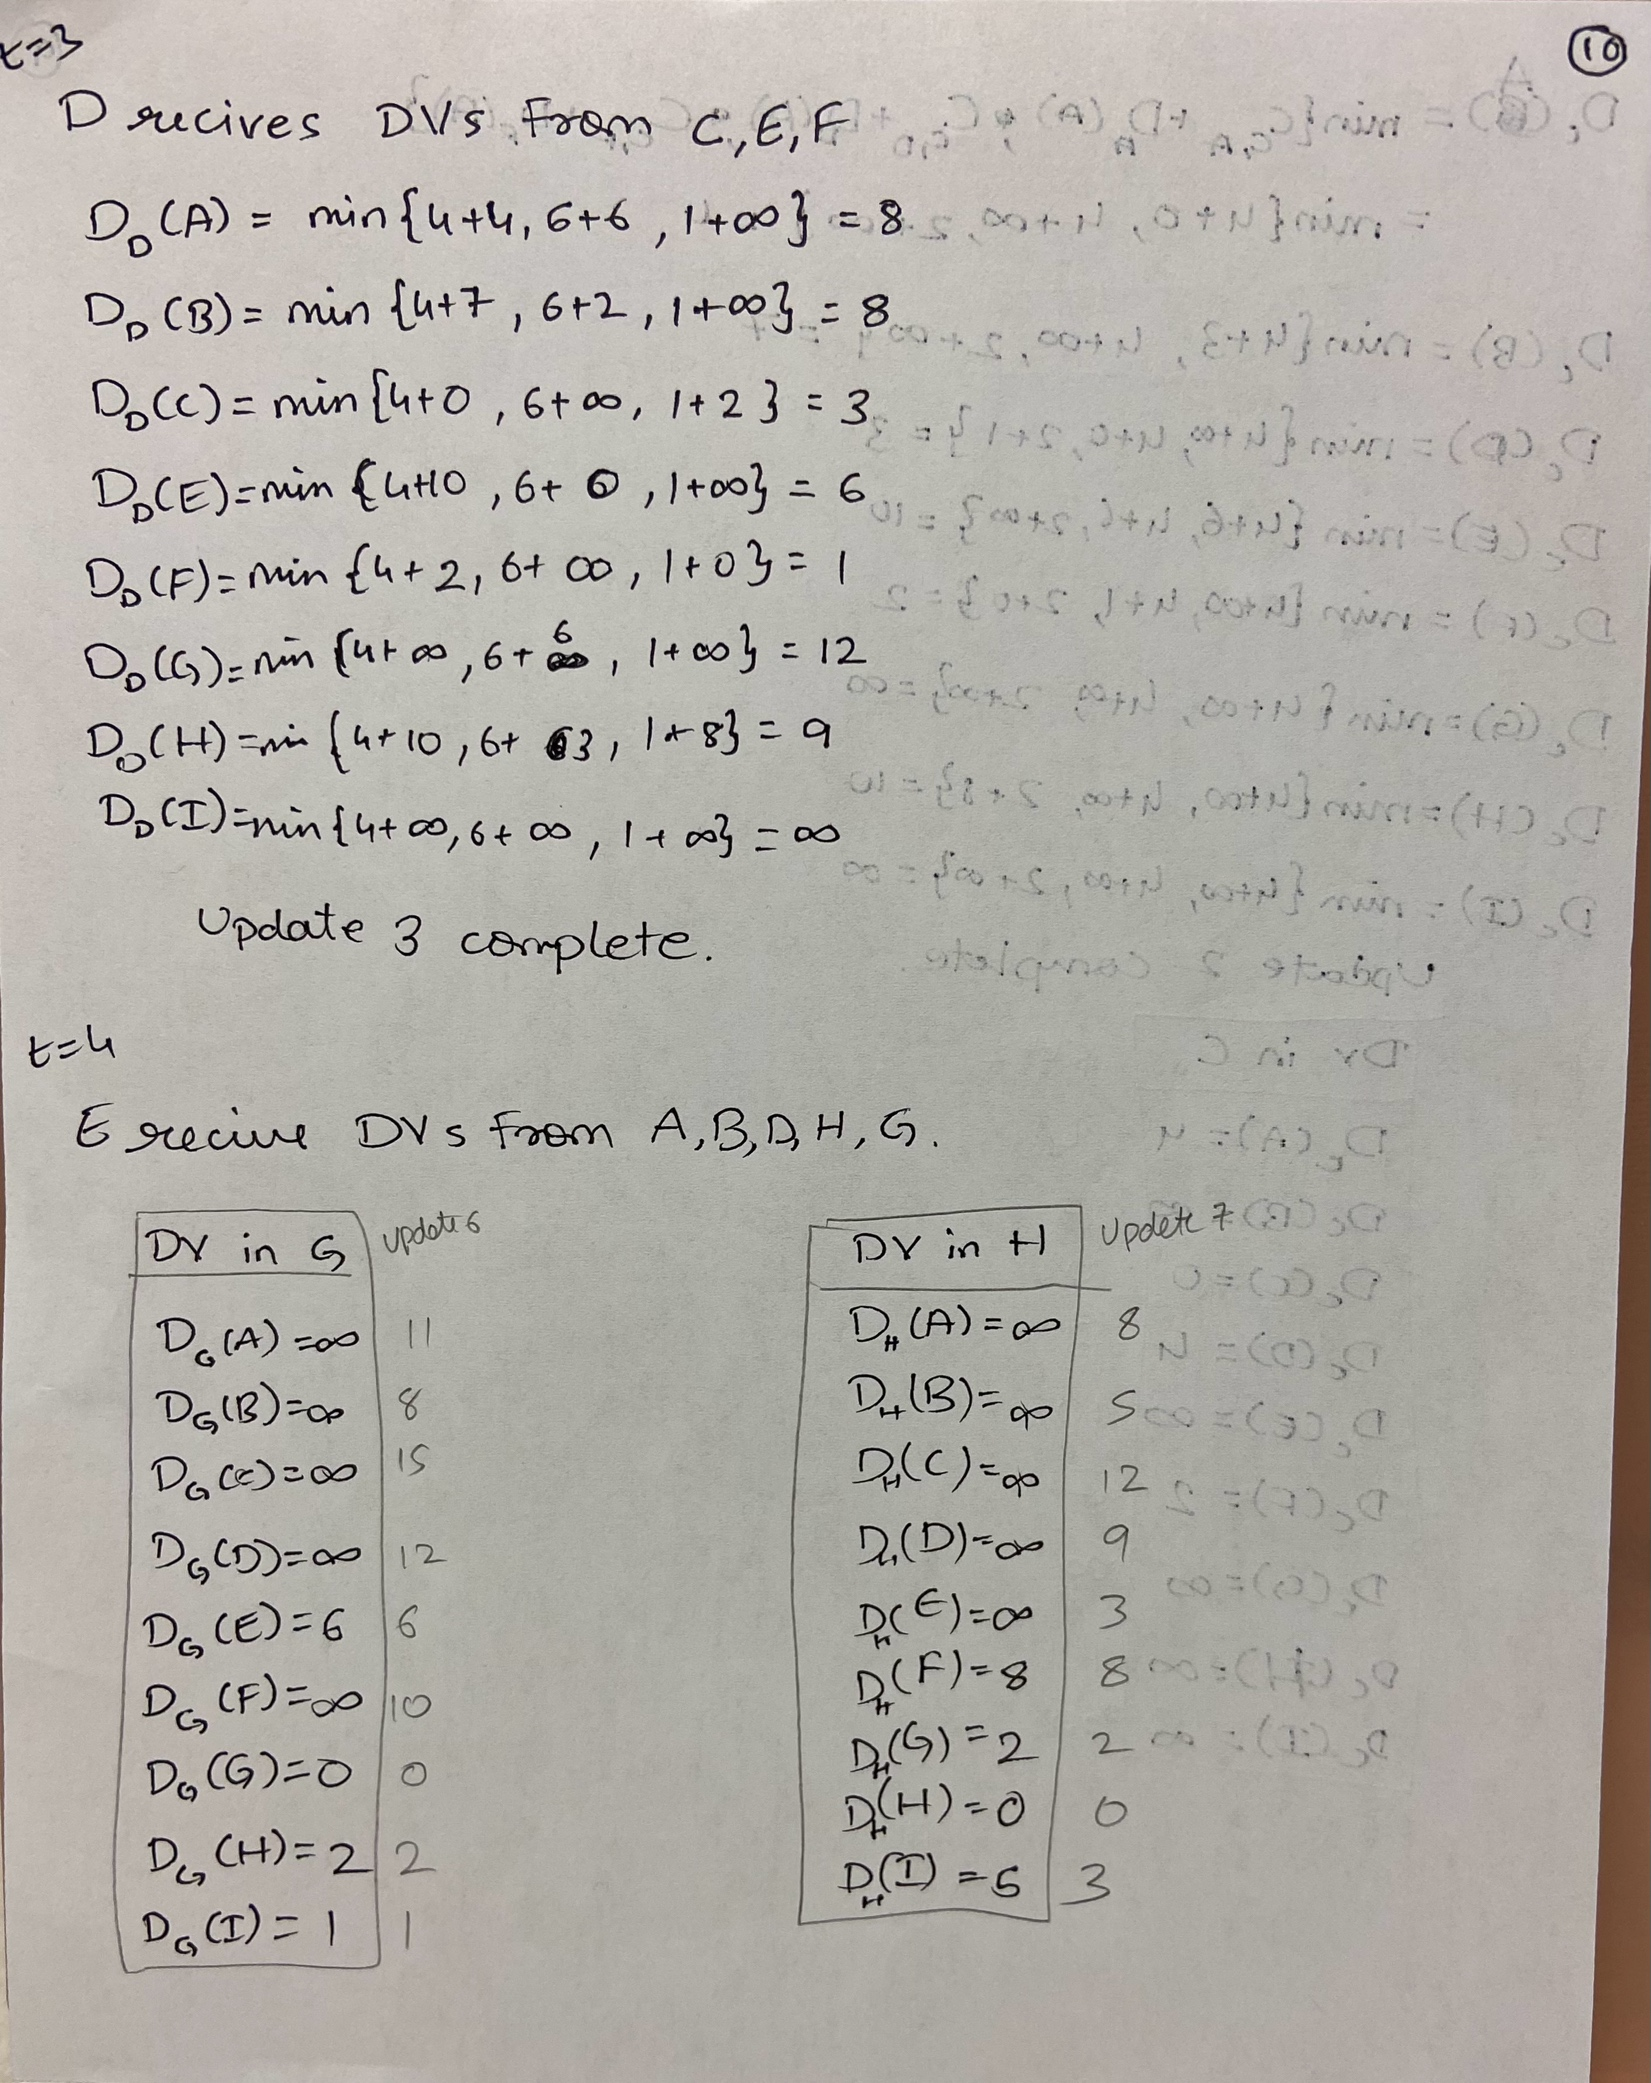 t=3
10
D recives DVs from C,E,F
D_D(A) = min{4+4, 6+6, 1+∞} = 8
D_D(B) = min {4+7, 6+2, 1+∞} = 8
D_D(C) = min {4+0, 6+∞, 1+2} = 3
D_D(E) = min {4+10, 6+0, 1+∞} = 6
D_D(F) = min {4+2, 6+∞, 1+0} = 1
D_D(G) = min {4+∞, 6+6, 1+∞} = 12
D_D(H) = min {4+10, 6+3, 1+8} = 9
D_D(I) = min{4+∞, 6+∞, 1+∞} = ∞
Update 3 complete.
t=4
E recive DVs from A,B,D,H,G.
DV in G update 6
D_G(A) = ∞ 11
D_G(B) = ∞ 8
D_G(C) = ∞ 15
D_G(D) = ∞ 12
D_G(E) = 6 6
D_G(F) = ∞ 10
D_G(G) = 0 0
D_G(H) = 2 2
D_G(I) = 1 1
DV in H Updete 7
D_H(A) = ∞ 8
D_H(B) = ∞ 5
D_H(C) = ∞ 12
D_H(D) = ∞ 9
D_H(E) = ∞ 3
D_H(F) = 8 8
D_H(G) = 2 2
D_H(H) = 0 0
D_H(I) = 5 3